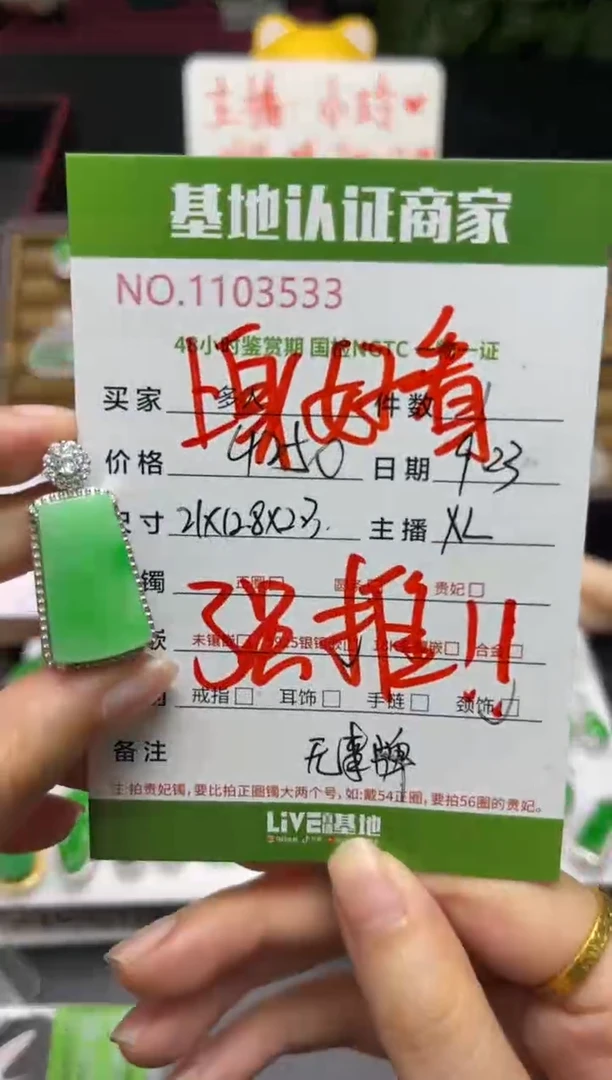 主播 小时❤
基地认证商家
NO.1103533
48小时鉴赏期 国检NGTC 一物一证
上身好看
买家 多人 件数 1
价格 4250 日期 4.23
尺寸 21X12.8X2.3. 主播 XL
镯 正圈□ 圆条 贵妃□
强推!!
嵌 未镶嵌□ 925银镶嵌 18K 镶嵌□ 合金□
戒指□ 耳饰□ 手链□ 颈饰☑
备注 无事牌
注:拍贵妃镯,要比拍正圈镯大两个号,如:戴54正圈,要拍56圈的贵妃。
LiVE直播基地